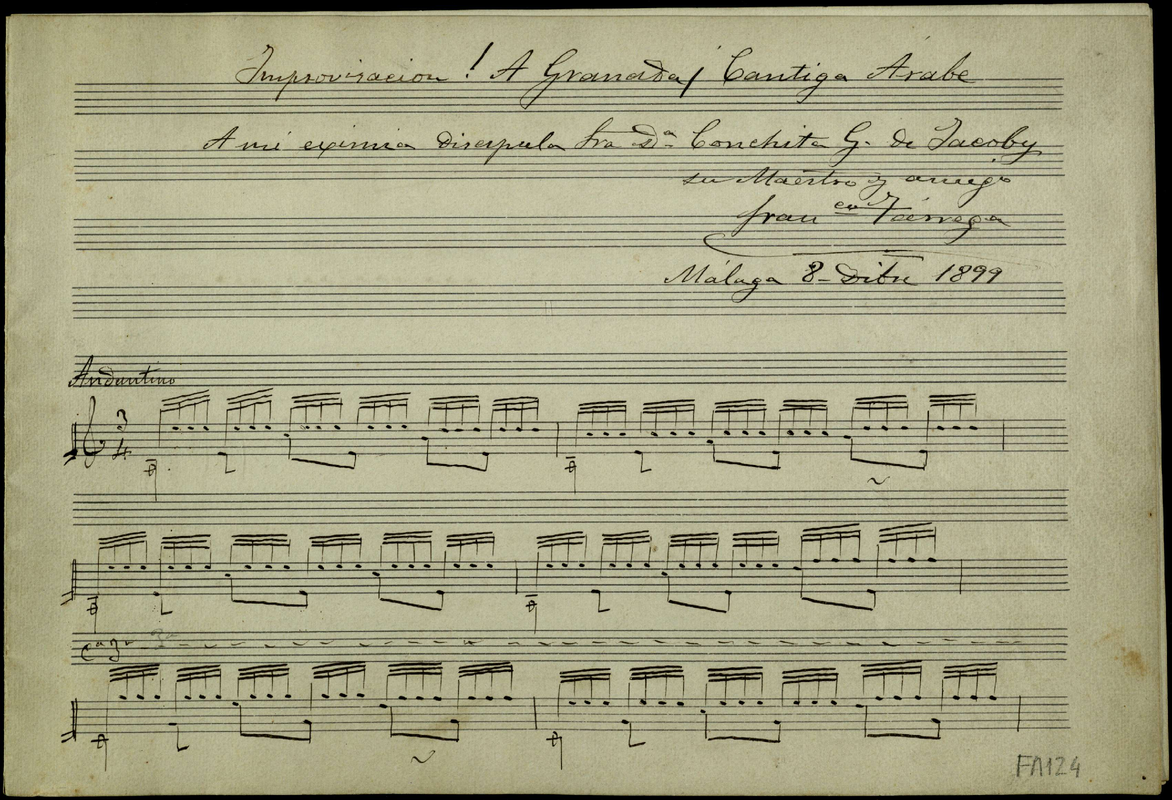 Improvisacion ! A Granada / Cantiga Árabe
A mi eximia discipula Sra Dª Conchita G. de Jacoby
su Maestro y amigo
Francᵒ Tárrega
Málaga 8 - Dibre 1899
Andantino
3
4
Cª 3ª
FA124